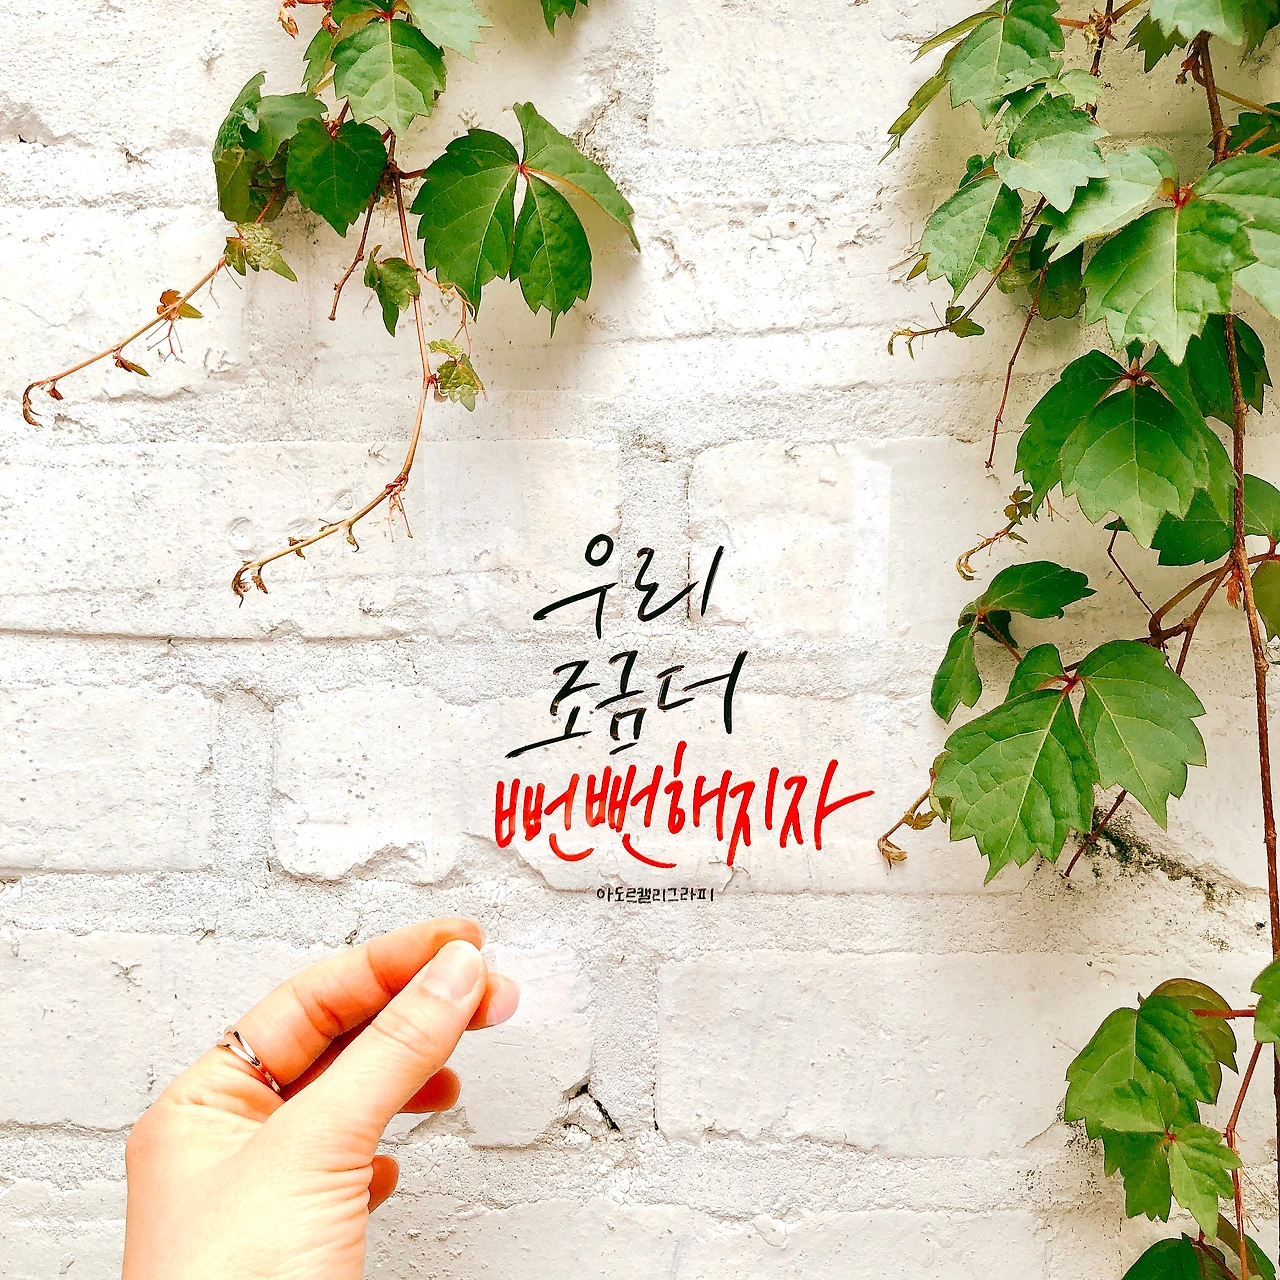 우리
조금더
뻔뻔해지자
아도르캘리그라피